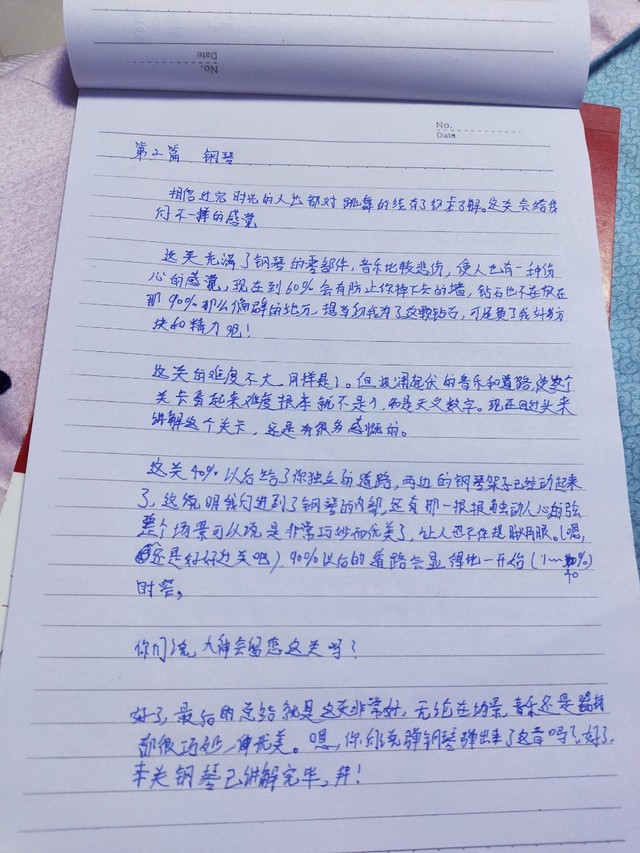 No.
Date
No.
Date
第2篇 钢琴
相信过完时光的人也都对跳舞的线有了初步了解。这关会给我
们不一样的感觉
这关充满了钢琴的零部件，音乐比较悲伤，使人也有一种伤
心的感觉，现在到60%会有防止你掉下去的墙，钻石也不在放在
那90%那么偏僻的地方，想当初我为了这颗钻石，可是费了我九牛
块和精力呢！
这关的难度不大，同样是1。但波澜起伏的音乐和道路，使整个
关卡看起来难度根本就不是1，而是天文数字。现在回过头来
讲解这个关卡，还是有很多感慨的。
这关40%以后给了你独立的道路，两边的钢琴架子已经动起来
了，这说明我们进到了钢琴的内部，还有那一根根触动人心的弦
整个场景可以说是非常巧妙而优美了，让人忍不住想歇歇眼。（嗯，
还是好好过关吧）90%以后的道路会显得比一开始（1～40%）
时窄。
你们说，大神会留恋这关吗？
好了，最后的总结就是这关非常好，无论在场景，音乐还是路线
都很巧妙，而优美。嗯，你们说弹钢琴弹出来了这首吗？好了，
本关钢琴已讲解完毕，拜！